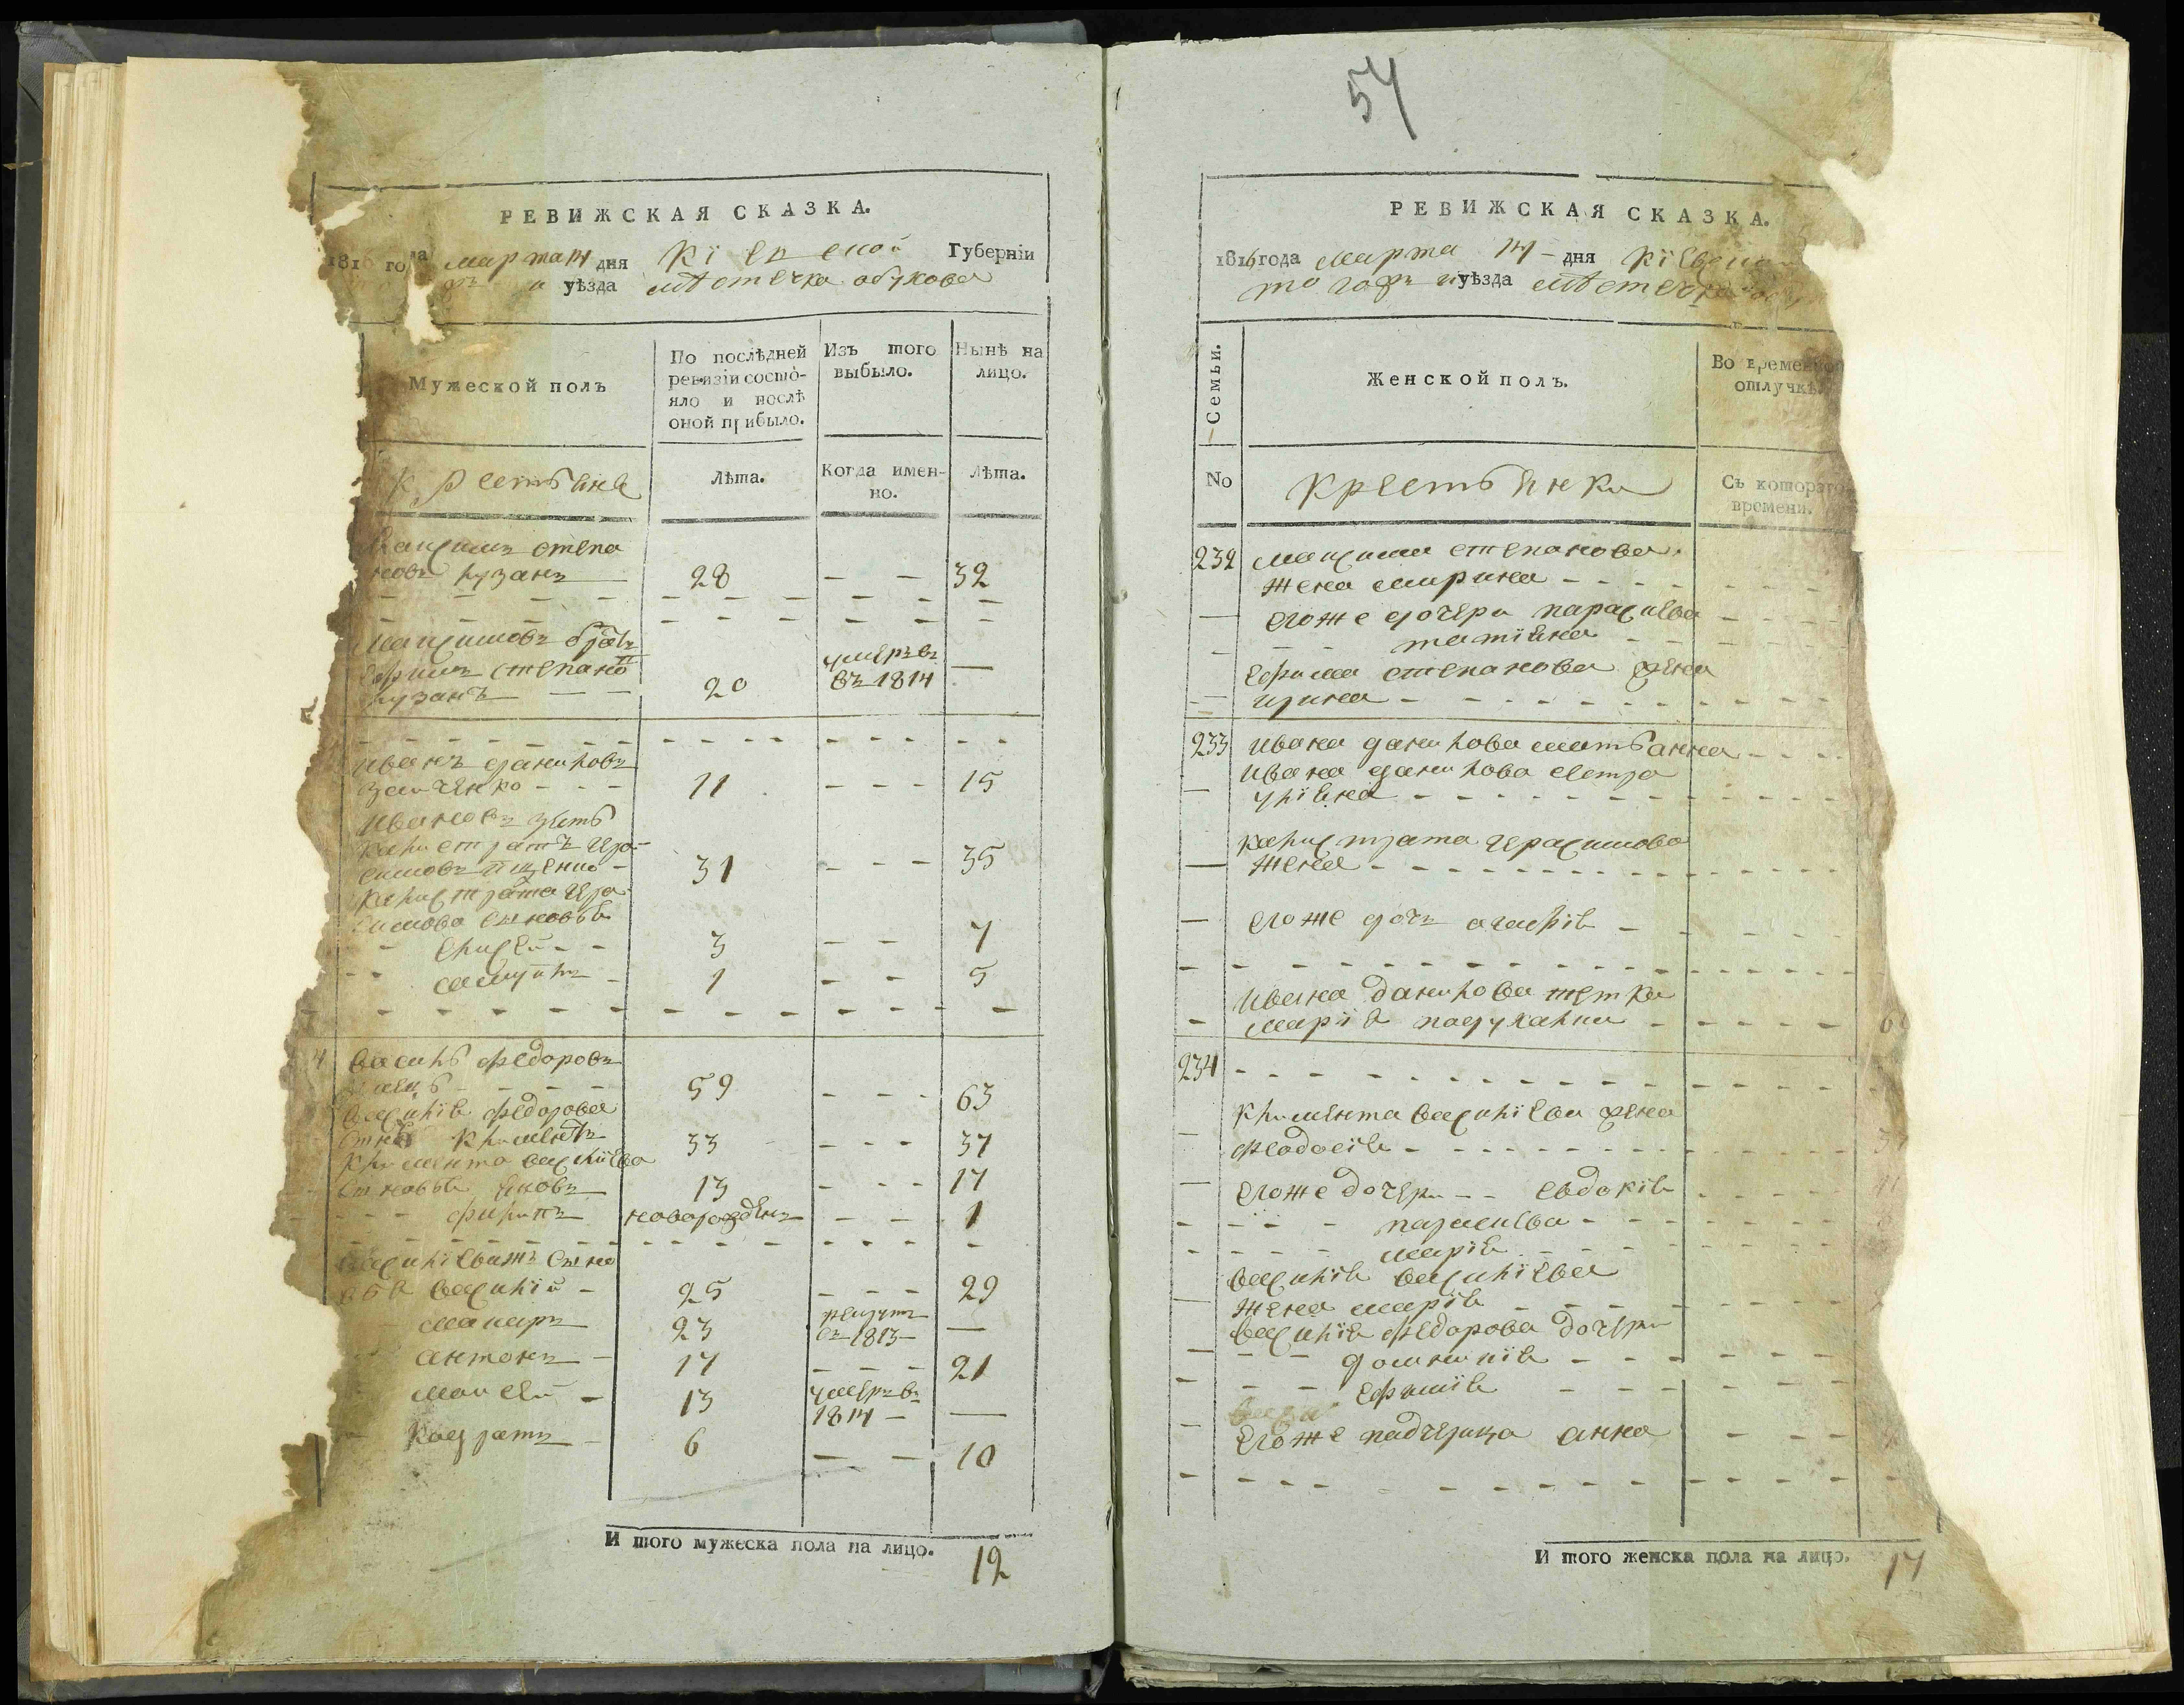 РЕВИЖСКАЯ СКАЗКА.
181 года марта 14 дня Кіевской Губерніи
и уѣзда мѣстечка обухова
Мужеской полъ
По послѣдней ревизіи состо-
яло и послѣ
оной прибыло.
Изъ того
выбыло.
Нынѣ на
лицо.
крестьяне
Лѣта.
Когда имен-
но.
Лѣта.
Максимъ степа
новъ лузанъ 28 — — 32
Максимовъ братъ
Ефимъ степано
лузанъ — — 20 умеръ въ 1814 —
иванъ даниловъ
заиченко - - - 11 - - - 15
ивановъ зять
калистратъ гера-
симовъ 31 - - - 35
калистрата гера
симова сыновья
елисей - - 3 — — 7
самуилъ - 1 - - 5
4 василь федоровъ
59 - - - 63
василія федорова
сынъ климентъ 33 - - - 37
климента василіева
сыновья яковъ 13 - - - 17
филипъ новорожденъ - — 1
василіевижъ сыно
вья василій - 25 - - - 29
макаръ 23 рекрутъ
въ 1813 — —
антонъ - 17 - - - 21
моисей - 13 умеръ въ
1814 — —
кондратъ - 6 — — 10
И того мужеска пола на лицо. 12
54
РЕВИЖСКАЯ СКАЗКА.
1816 года марта 14 - дня Кіевской
того и уѣзда мѣстечка
Семьи.
Женской полъ.
Во временной
отлучкѣ.
No
крестьянки
Съ котораго
времени.
232 максима степанова
жена марина - - - -
— егоже дочери параскева
- - - татіяна - -
ефима степанова жена
— ирина - - - - -
233 ивана данилова мать анна - - - -
ивана данилова сестра
— уліяна - - - - -
калистрата герасимова
— жена - - - - -
— егоже дочь агафія - - - -
ивана данилова тетка
- марія - - - - -
234 - - - - - - -
климента василіева жена
— феодосія - - - - -
— егоже дочери - - евдокія
- - - - параскева - -
- - - - марія - -
василія василіева
— жена марія
василія федорова дочери
— - - домникія - -
- - - ефимія - -
- егоже падчерица анна - - -
И того женска пола на лицо. 17